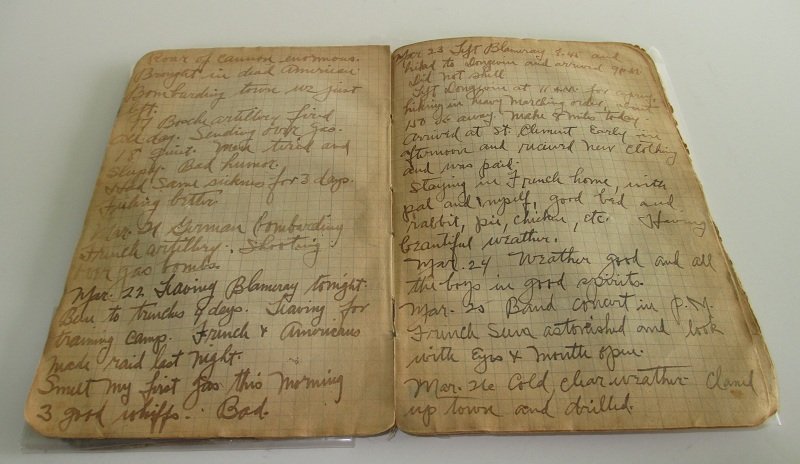 Roar of cannon enormous.
Brought in dead American
Bombarding town we just
left.
17 Boche artillery fired
all day. Sending over gas.
18 Quiet. Much tired and
sleepy. Bad humor.
19 Had some sickness for 3 days.
Feeling better.
Mar. 21 German bombarding
French artillery. Shooting
over gas bombs.
Mar. 22 Leaving Blameray tonight.
Been to trenches 9 days. Leaving for
training camp. French & Americans
made raid last night.
Smelt my first gas this morning
3 good whiffs. Bad.
Mar 23 Left Blameray 7.45 and
hiked to Dongevin and arrived 9 P.M.
Did not shell
Left Dongevin at 11 A.M. for
hiking in heavy marching order,
150 away. Make 8 miles today.
Arrived at St. Clement early in
afternoon and received new clothing
and was paid.
Staying in French home, with
pal and myself, good bed and
rabbit, pie, chicken, etc. Having
beautiful weather.
Mar. 24 Weather good and all
the boys in good spirits.
Mar. 25 Band concert in P.M.
French astonished and look
with Eyes & Mouth open.
Mar. 26 Cold, clear weather. Cleaned
up town and drilled.